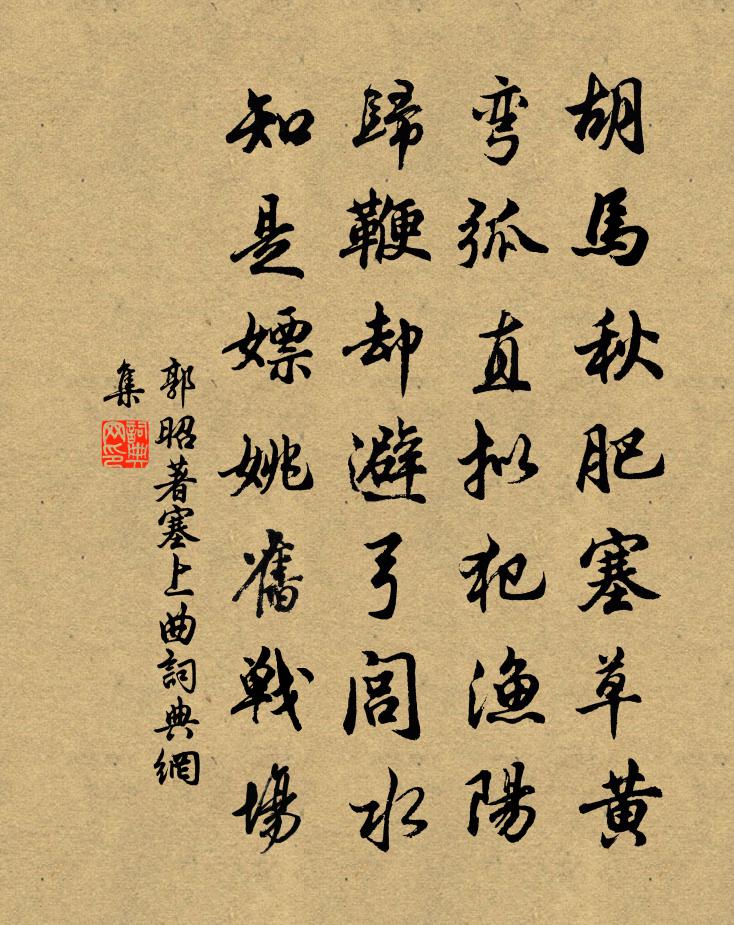 胡馬秋肥塞草黄
弯弧直拟犯漁陽
歸鞭却避弓閭水
知是嫖姚舊戰場
郭昭著塞上曲詞典網
集
詞典
网印